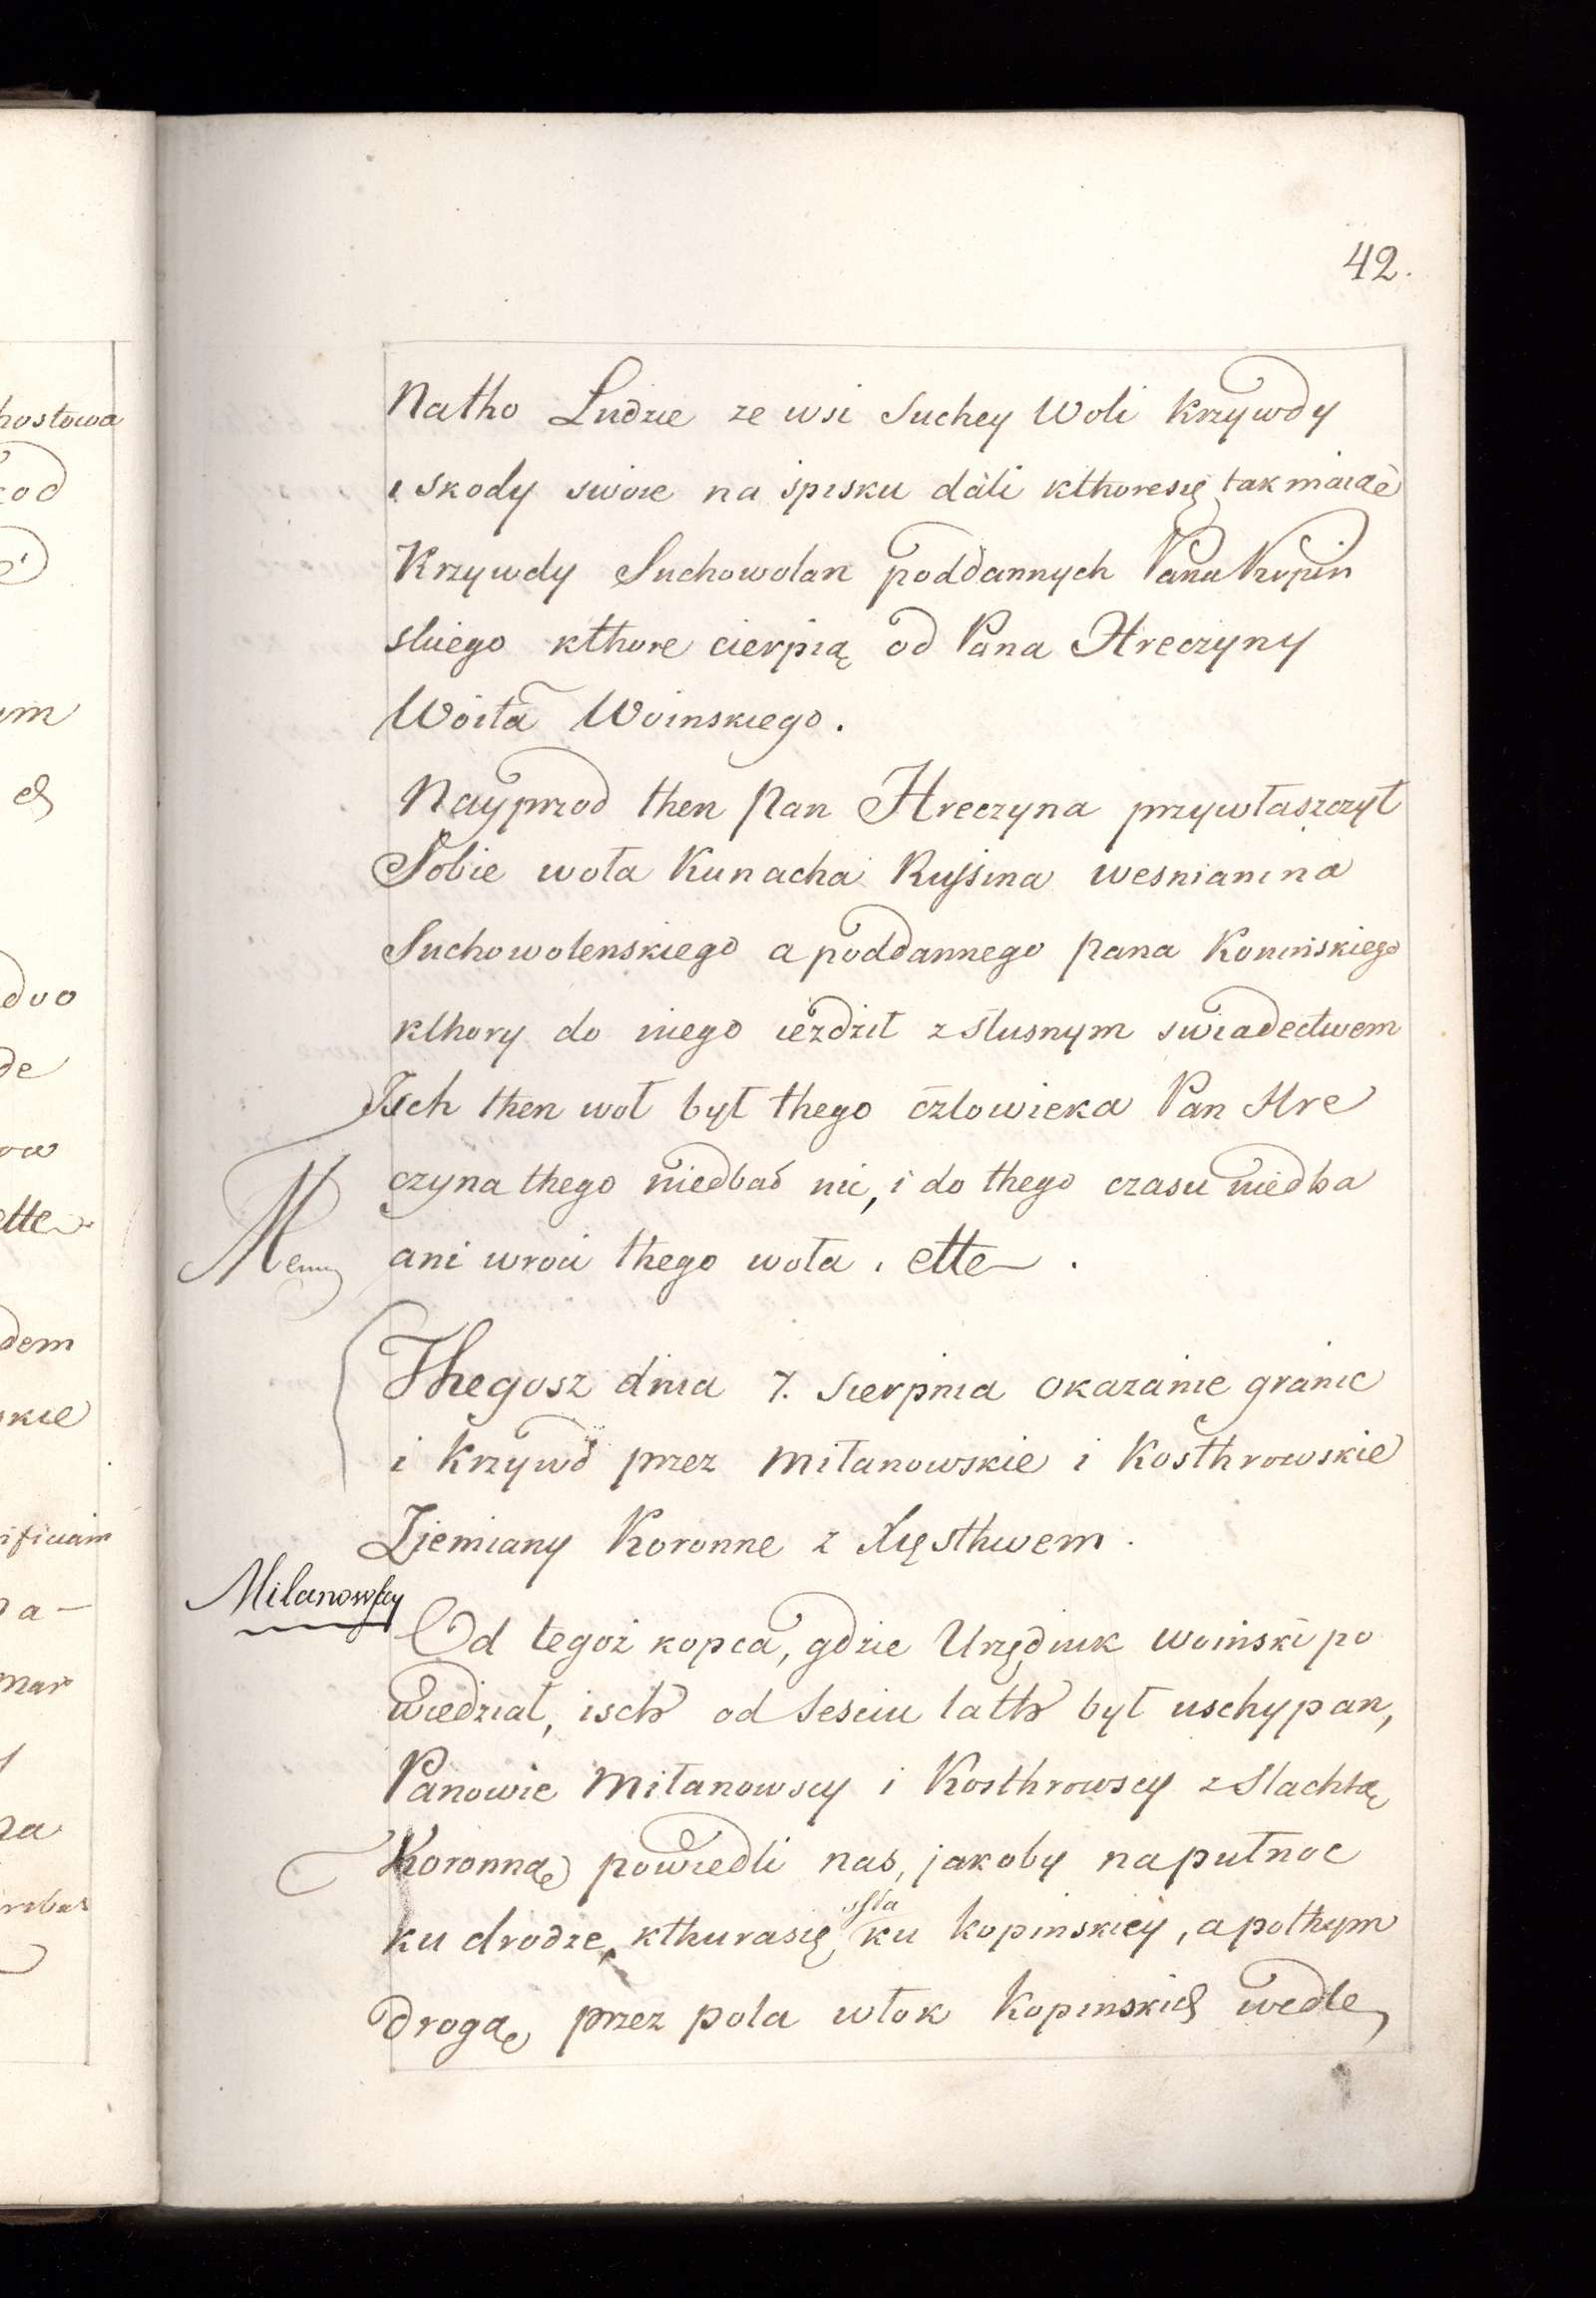 42.
Natho Ludzie ze wsi Suchey Woli Krzywdy
i skody swoie na spisku dali kthoresię tak maiaę
Krzywdy Suchowolan poddannych Pana
skiego kthore cierpią od Pana Hreczyny
Woita Woinskiego.
Nayprzod then Pan Hreczyna przywłaszczył
Sobie woła Kunacha Russina wesnianina
Suchowolenskiego a poddannego pana Koninskiego
kthory do niego iezdził z slusnym swiadectwem
Isch then woł był thego człowieka Pan Hre
czyna thego niedbał nic, i do thego czasu niedba
ani wroci thego woła. ette.
Thegosz dnia 7. Sierpnia okazanie granic
i Krzywd przez Miłanowskie i Kosthrowskie
Ziemiany Koronne z Xięsthwem.
Milanowscy
Od tegoż kopca, gdzie Urzędnik woinski po
wiedział, isch od sesciu lath był uschypan,
Panowie Miłanowscy i Kosthrowscy z Slachtą
Koronną powiedli nas, jakoby na pułnoc
ku drodze, kthurasię ssła ku kopinskiey, a pothym
drogą przez pola włok Kopinskich wedle